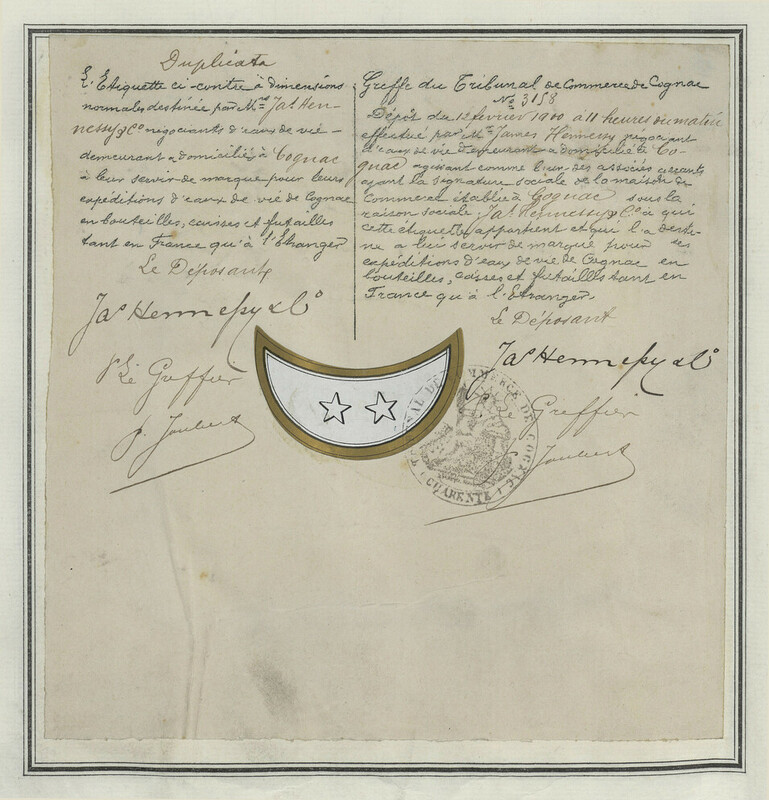 Duplicata
L'Etiquette ci-contre à dimensions
normales destinée par MM. Jas Hen-
nessy & Co négociants d'eaux de vie -
demeurant & domiciliés à Cognac
à leur servir de marque pour leurs
expéditions d'eaux de vie de Cognac
en bouteilles, caisses et futailles
tant en France qu'à l'Etranger
Le Déposant
Jas Hennessy & Co
Pr Le Greffier
P. Joubert
Greffe du Tribunal de Commerce de Cognac
No 3158
Dépôt du 12 février 1900 à 11 heures du matin
effectué par Mr James Hennessy négociant
d'eaux de vie demeurant & domicilié à Co-
gnac agissant comme l'un des associés gérants
ayant la signature sociale de la maison de
Commerce établie à Cognac sous la
raison sociale Jas Hennessy & Co à qui
cette étiquette appartient et qui l'a desti-
née à lui servir de marque pour ses
expéditions d'eaux de vie de Cognac en
bouteilles, caisses et futailles tant en
France qu'à l'Etranger
Le Déposant
Jas Hennessy & Co
Pr Le Greffier
Joubert
TRIBUNAL DE COMMERCE DE COGNAC
CHARENTE